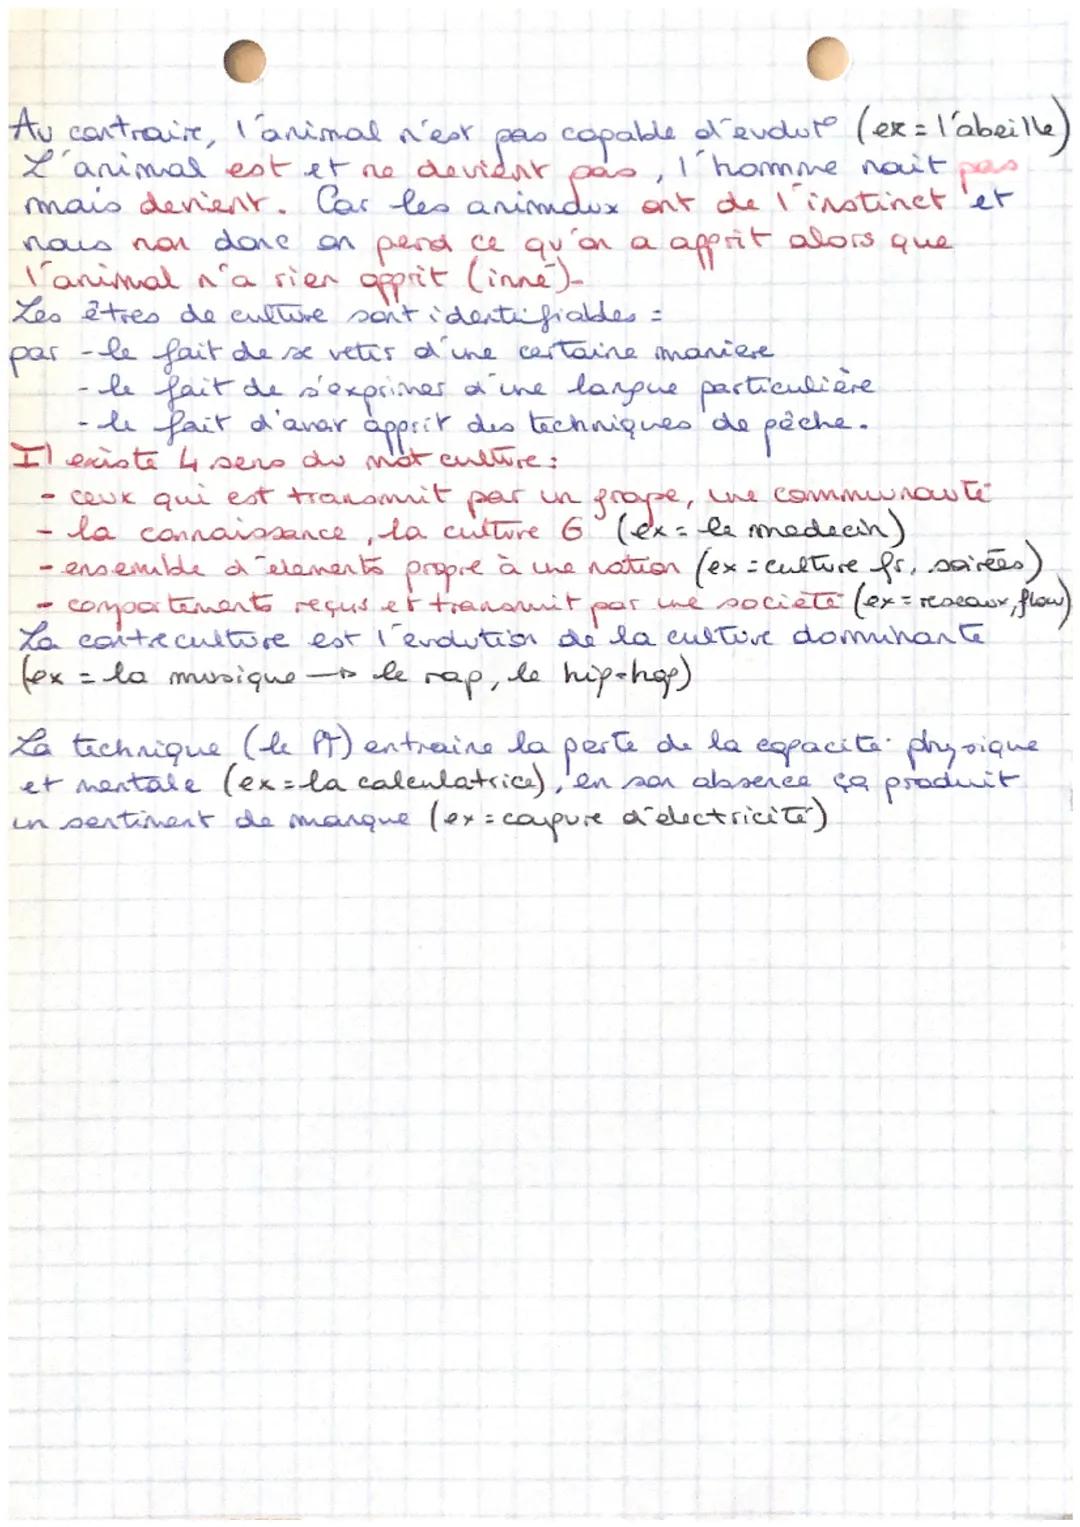 Au contraire, l'animal n'est pas capable d'évolut° (ex = l'abeille)
L'animal est et ne devient pas, l'homme nait pas
mais devient. Car les animaux ont de l'instinct et
nous non donc on perd ce qu'on a apprit alors que
l'animal n'a rien apprit (inné).
Les êtres de culture sont identifiables :
par - le fait de se vetir d'une certaine maniere
- le fait de s'exprimer d'une langue particulière
- le fait d'avoir apprit des techniques de pêche.
Il existe 4 sens du mot culture :
- ceux qui est transmit par un groupe, une communauté
- la connaissance, la culture G (ex = le medecin)
- ensemble d'élements propre à une nation (ex = culture fr, soirées)
- comportements reçus et transmit par une société (ex = reseaux, flow)
La contreculture est l'évolution de la culture dominante
(ex = la musique → le rap, le hip-hop)
La technique (le PT) entraine la perte de la capacité physique
et mentale (ex = la calculatrice), en son absence ça produit
un sentiment de manque (ex = coupure d'électricité)